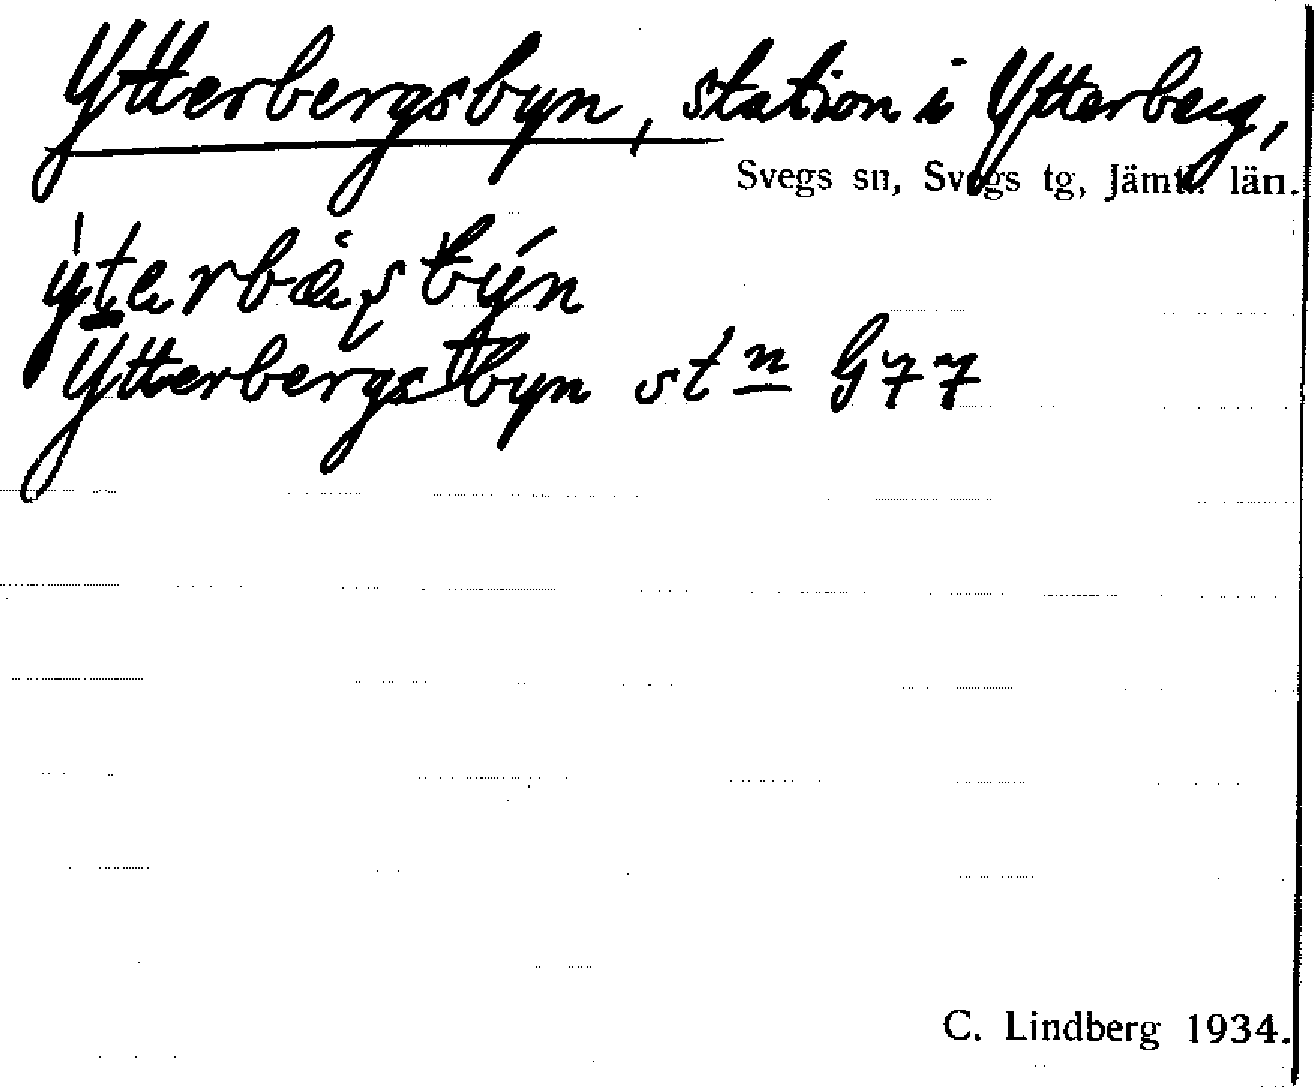 Ytterbergsbyn, station i Ytterberg,
Svegs sn, Svegs tg, Jämtl. län.
Ytterbergsbyn stn G77
C. Lindberg 1934.